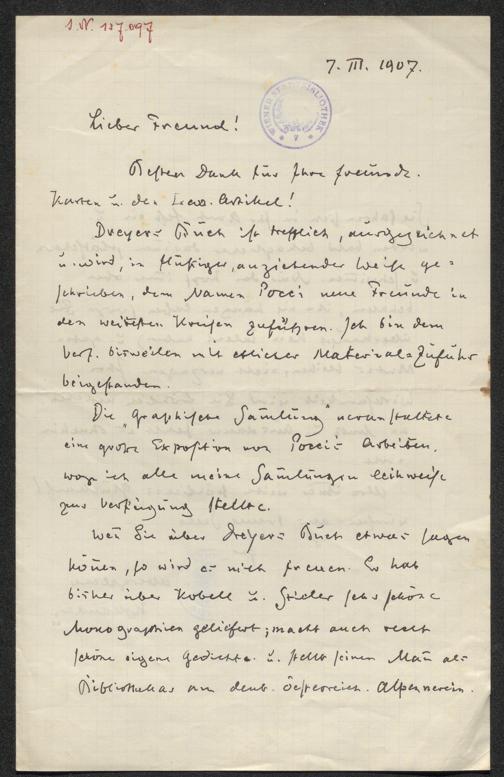 I. N. 127.097
7. III. 1907.
WIENER STADTBIBLIOTHEK
Lieber Freund!
Besten Dank für Ihre freundl.
Karten u. den Artikel!
Dreyers Buch ist trefflich, ausgezeichnet
u. wird, in flüßiger, anziehender Weise ge-
schrieben, dem Namen Pocci neue Freunde in
den weitesten Kreisen zuführen. Ich bin dem
Verf. bisweilen mit etlicher Material-Zufuhr
beigestanden.
Die „Graphische Sam̄lung" veranstaltete
eine große Exposition von Pocci's Arbeiten,
wozu ich alle meine Sam̄lungen leihweise
zur Verfügung stellte.
Wen̄ Sie über Dreyers Buch etwas sagen
kön̄en, so wird es mich freuen. Er hat
bisher über Kobell u. Stieler sehr schöne
Monographien geliefert; macht auch recht
schöne eigene Gedichte u. stellt seinen Man̄ als
Bibliothekar am deut. österreich. Alpenverein.